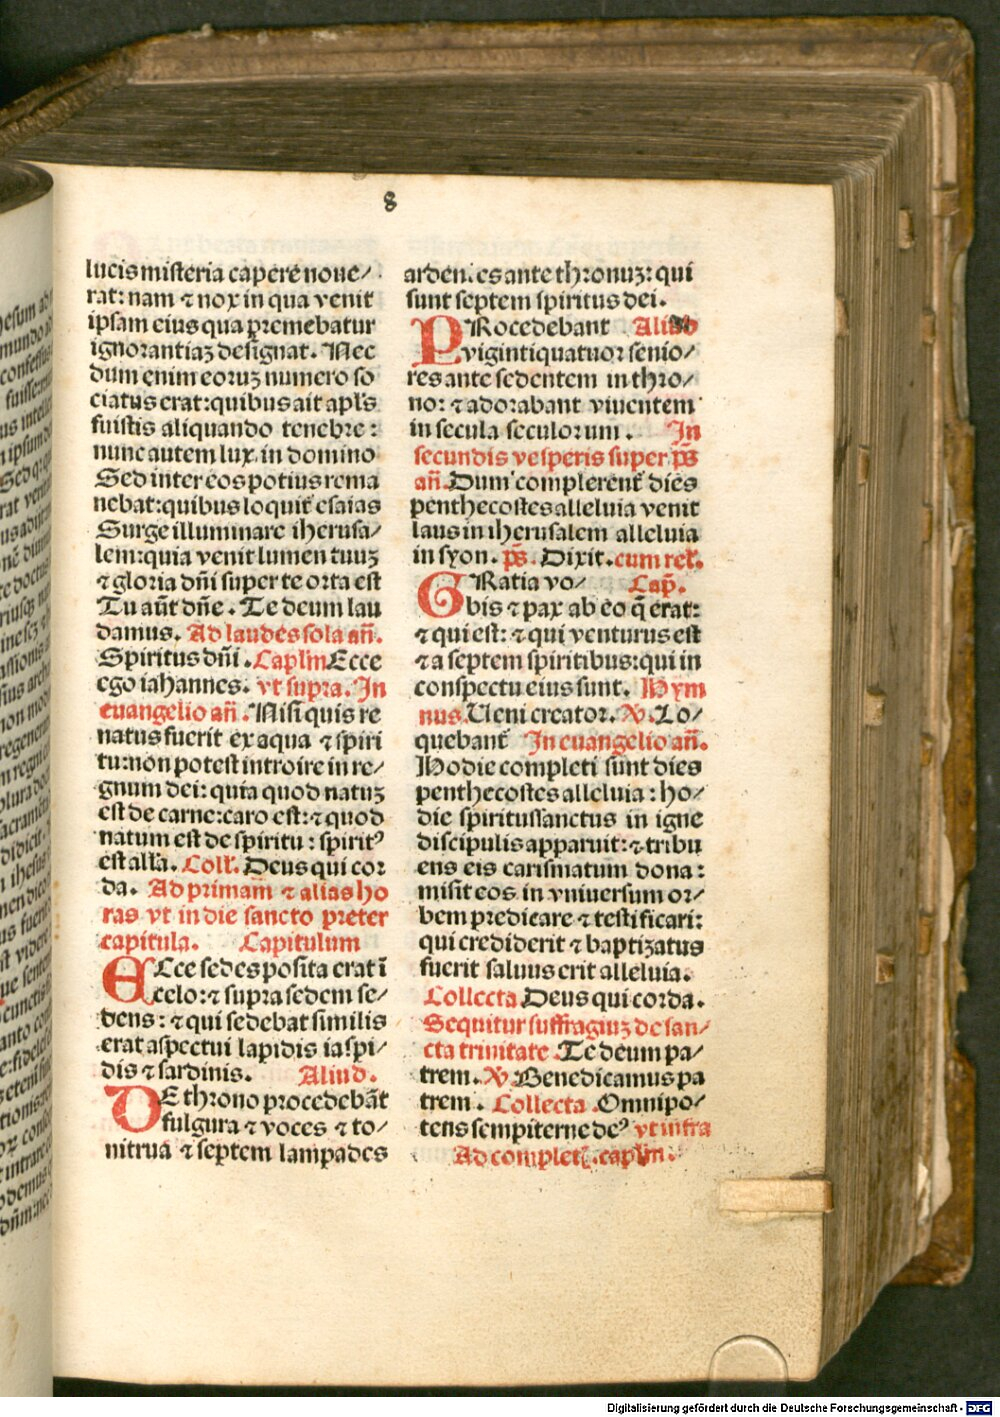 8
lucis misteria capere noue⸗
rat: nam ⁊ nox in qua venit
ipsam eius qua premebatur
ignorantiaꝫ designat. Nec
dum enim eoruꝫ numero so
ciatus erat: quibus ait apl's
fuistis aliquando tenebre:
nunc autem lux in domino
Sed inter eos potius rema
nebat: quibus loquit᷑ esaias
Surge illuminare iherusa⸗
lem: quia venit lumen tuuꝫ
⁊ gloria dñi super te orta est
Tu aũt dñe. Te deum lau
damus. Ad laudes sola añ.
Spiritus dñi. Capl'm Ecce
ego iohannes. vt supra. In
euangelio añ. Nisi quis re
natus fuerit ex aqua ⁊ spiri
tu: non potest introire in re⸗
gnum dei: quia quod natuꝫ
est de carne: caro est: ⁊ quod
natum est de spiritu: spiritꝰ
est alľa. Coll'. Deus qui cor
da. Ad primam̃ ⁊ alias ho
ras vt in die sancto preter
capitula. Capitulum
ECce sedes posita erat ĩ
celo: ⁊ supra sedem se⸗
dens: ⁊ qui sedebat similis
erat aspectui lapidis iaspi⸗
dis ⁊ sardinis. Aliud.
DE throno procedebãt
fulgura ⁊ voces ⁊ to⸗
nitrua ⁊ septem lampades
arden.es ante thronuꝫ: qui
sunt septem spiritus dei.
PRocedebant Aliud
vigintiquatuor senio⸗
res ante sedentem in thro⸗
no: ⁊ adorabant viuentem
in secula seculorum. In
secundis vesperis super p̃s
añ. Dum complerent᷑ dies
penthecostes alleluia venit
laus in iherusalem alleluia
in syon. p̃s. Dixit. cum rel'.
GRatia vo⸗ Cap̃.
bis ⁊ pax ab eo q̃ erat:
⁊ qui est: ⁊ qui venturus est
⁊ a septem spiritibus: qui in
conspectu eius sunt. Hym
nus. Ueni creator. ℣. Lo⸗
quebant᷑ In euangelio añ.
Hodie completi sunt dies
penthecostes alleluia: ho⸗
die spiritussanctus in igne
discipulis apparuit: ⁊ tribu
ens eis carismatum dona:
misit eos in vniuersum or⸗
bem predicare ⁊ testificari:
qui crediderit ⁊ baptizatus
fuerit saluus erit alleluia.
Collecta Deus qui corda.
Sequitur suffragiuꝫ de san⸗
cta trinitate. Te deum pa⸗
trem. ℣. Benedicamus pa
trem. Collecta. Omnipo⸗
tens sempiterne deꝰ vt infra
Ad complet̃. capl'm.
Digitalisierung gefördert durch die Deutsche Forschungsgemeinschaft - DFG